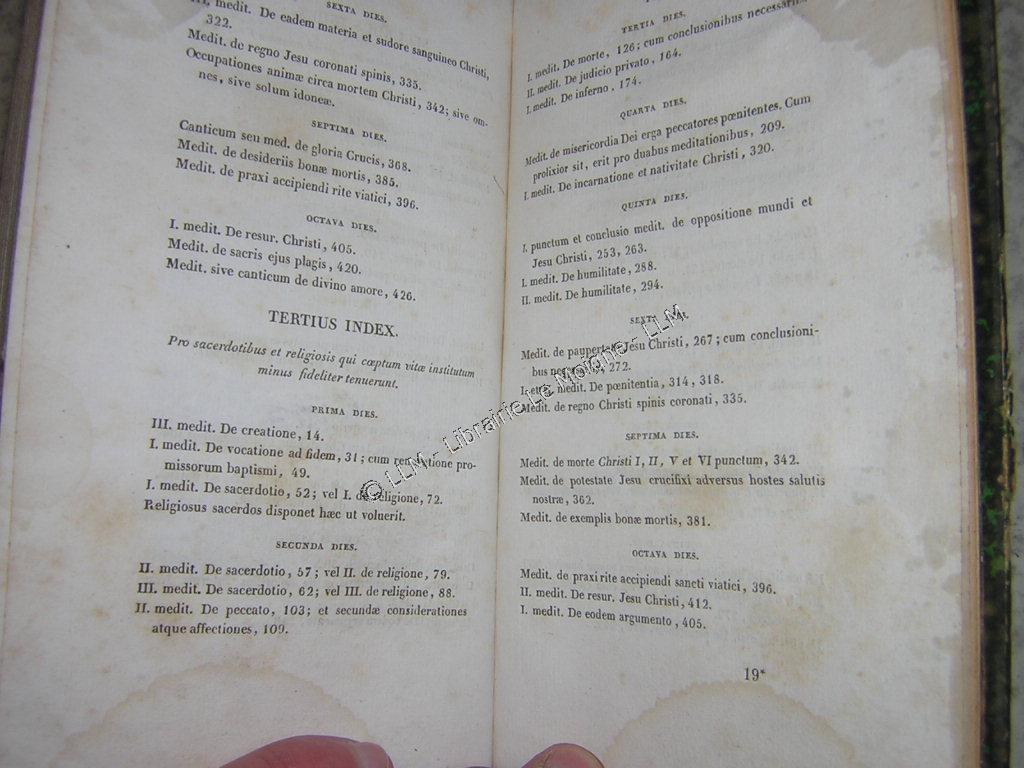 SEXTA DIES.
III. medit. De eadem materia et sudore sanguineo Christi,
322.
Medit. de regno Jesu coronati spinis, 335.
Occupationes animæ circa mortem Christi, 342; sive om-
nes, sive solum idoneæ.
SEPTIMA DIES.
Canticum seu med. de gloria Crucis, 368.
Medit. de desideriis bonæ mortis, 385.
Medit. de praxi accipiendi rite viatici, 396.
OCTAVA DIES.
I. medit. De resur. Christi, 405.
Medit. de sacris ejus plagis, 420.
Medit. sive canticum de divino amore, 426.
TERTIUS INDEX.
Pro sacerdotibus et religiosis qui cœptum vitæ institutum
minus fideliter tenuerunt.
PRIMA DIES.
III. medit. De creatione, 14.
I. medit. De vocatione ad fidem, 31; cum renovatione pro-
missorum baptismi, 49.
I. medit. De sacerdotio, 52; vel I. de religione, 72.
Religiosus sacerdos disponet hæc ut voluerit.
SECUNDA DIES.
II. medit. De sacerdotio, 57; vel II. de religione, 79.
III. medit. De sacerdotio, 62; vel III. de religione, 88.
II. medit. De peccato, 103; et secundæ considerationes
atque affectiones, 109.
TERTIA DIES.
I. medit. De morte, 126; cum conclusionibus
II. medit. De judicio privato, 164.
I. medit. De inferno, 174.
QUARTA DIES.
Medit. de misericordia Dei erga peccatores pœnitentes. Cum
prolixior sit, erit pro duabus meditationibus, 209.
I. medit. De incarnatione et nativitate Christi, 320.
QUINTA DIES.
I. punctum et conclusio medit. de oppositione mundi et
Jesu Christi, 253, 263.
I. medit. De humilitate, 288.
II. medit. De humilitate, 294.
SEXTA DIES.
Medit. de paupertate Jesu Christi, 267; cum conclusioni-
bus 272.
medit. De pœnitentia, 314, 318.
Medit. de regno Christi spinis coronati, 335.
SEPTIMA DIES.
Medit. de morte Christi I, II, V et VI punctum, 342.
Medit. de potestate Jesu crucifixi adversus hostes salutis
nostræ, 362.
Medit. de exemplis bonæ mortis, 381.
OCTAVA DIES.
Medit. de praxi rite accipiendi sancti viatici, 396.
II. medit. De resur. Jesu Christi, 412.
I. medit. De eodem argumento, 405.
19*
© LLM - Librairie Le Moigne - LLM